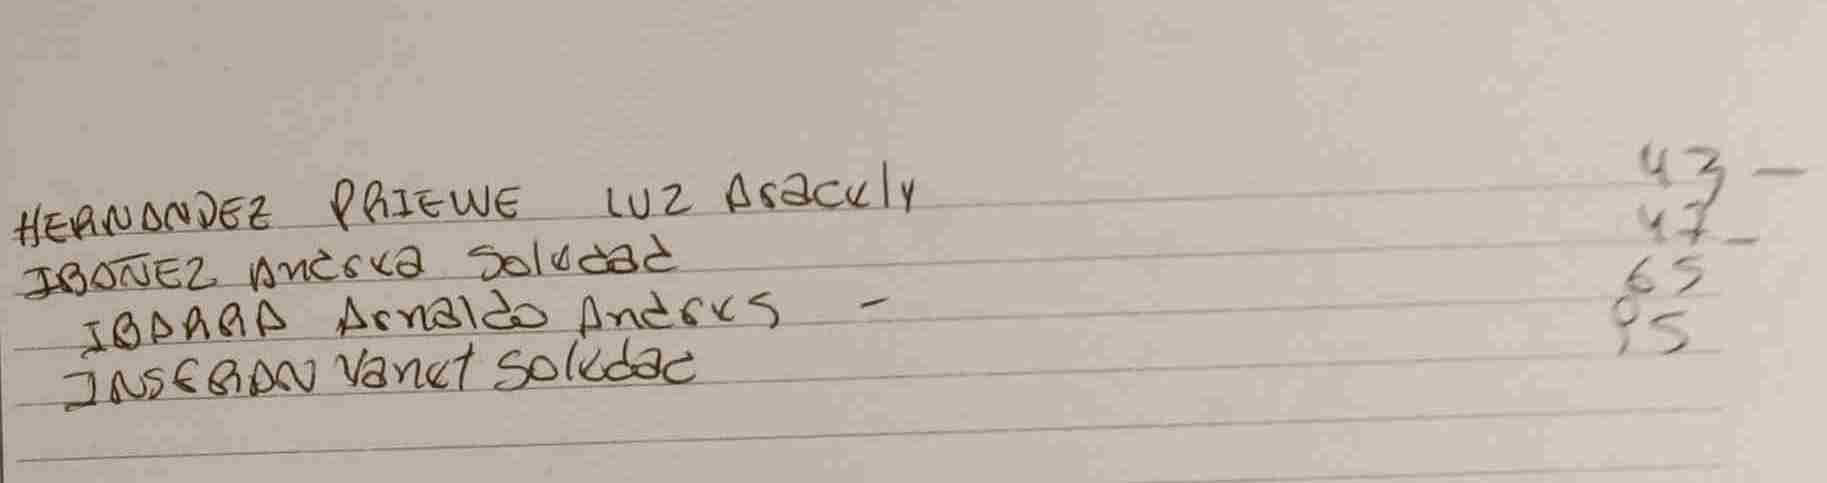 HERNANDEZ PRIEWE LUZ Aracely 43 -
IBAÑEZ Andrea Soledad 47 -
IBARRA Arnaldo Andres - 65
INSFRAN Vanet Soledad 95